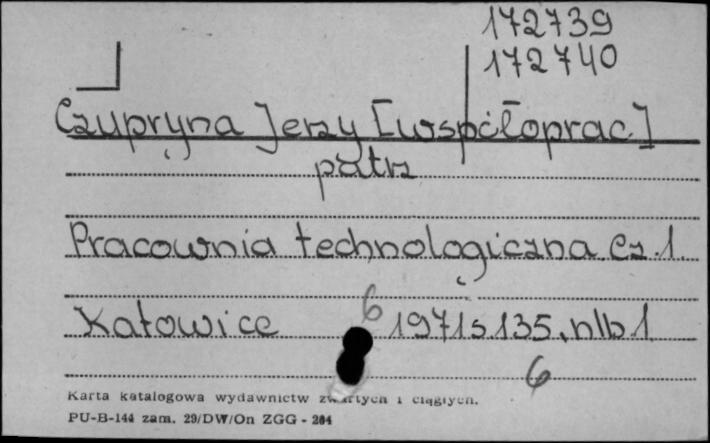 172739
172740
Czupryna Jerzy [wspołoprac]
patrz
Pracownia technologiczna Cz. 1.
6
Katowice 1971 s 135, nlb 1
6
Karta katalogowa wydawnictw zwartych i ciągłych.
PU-B-144 zam. 29/DW/On ZGG - 204